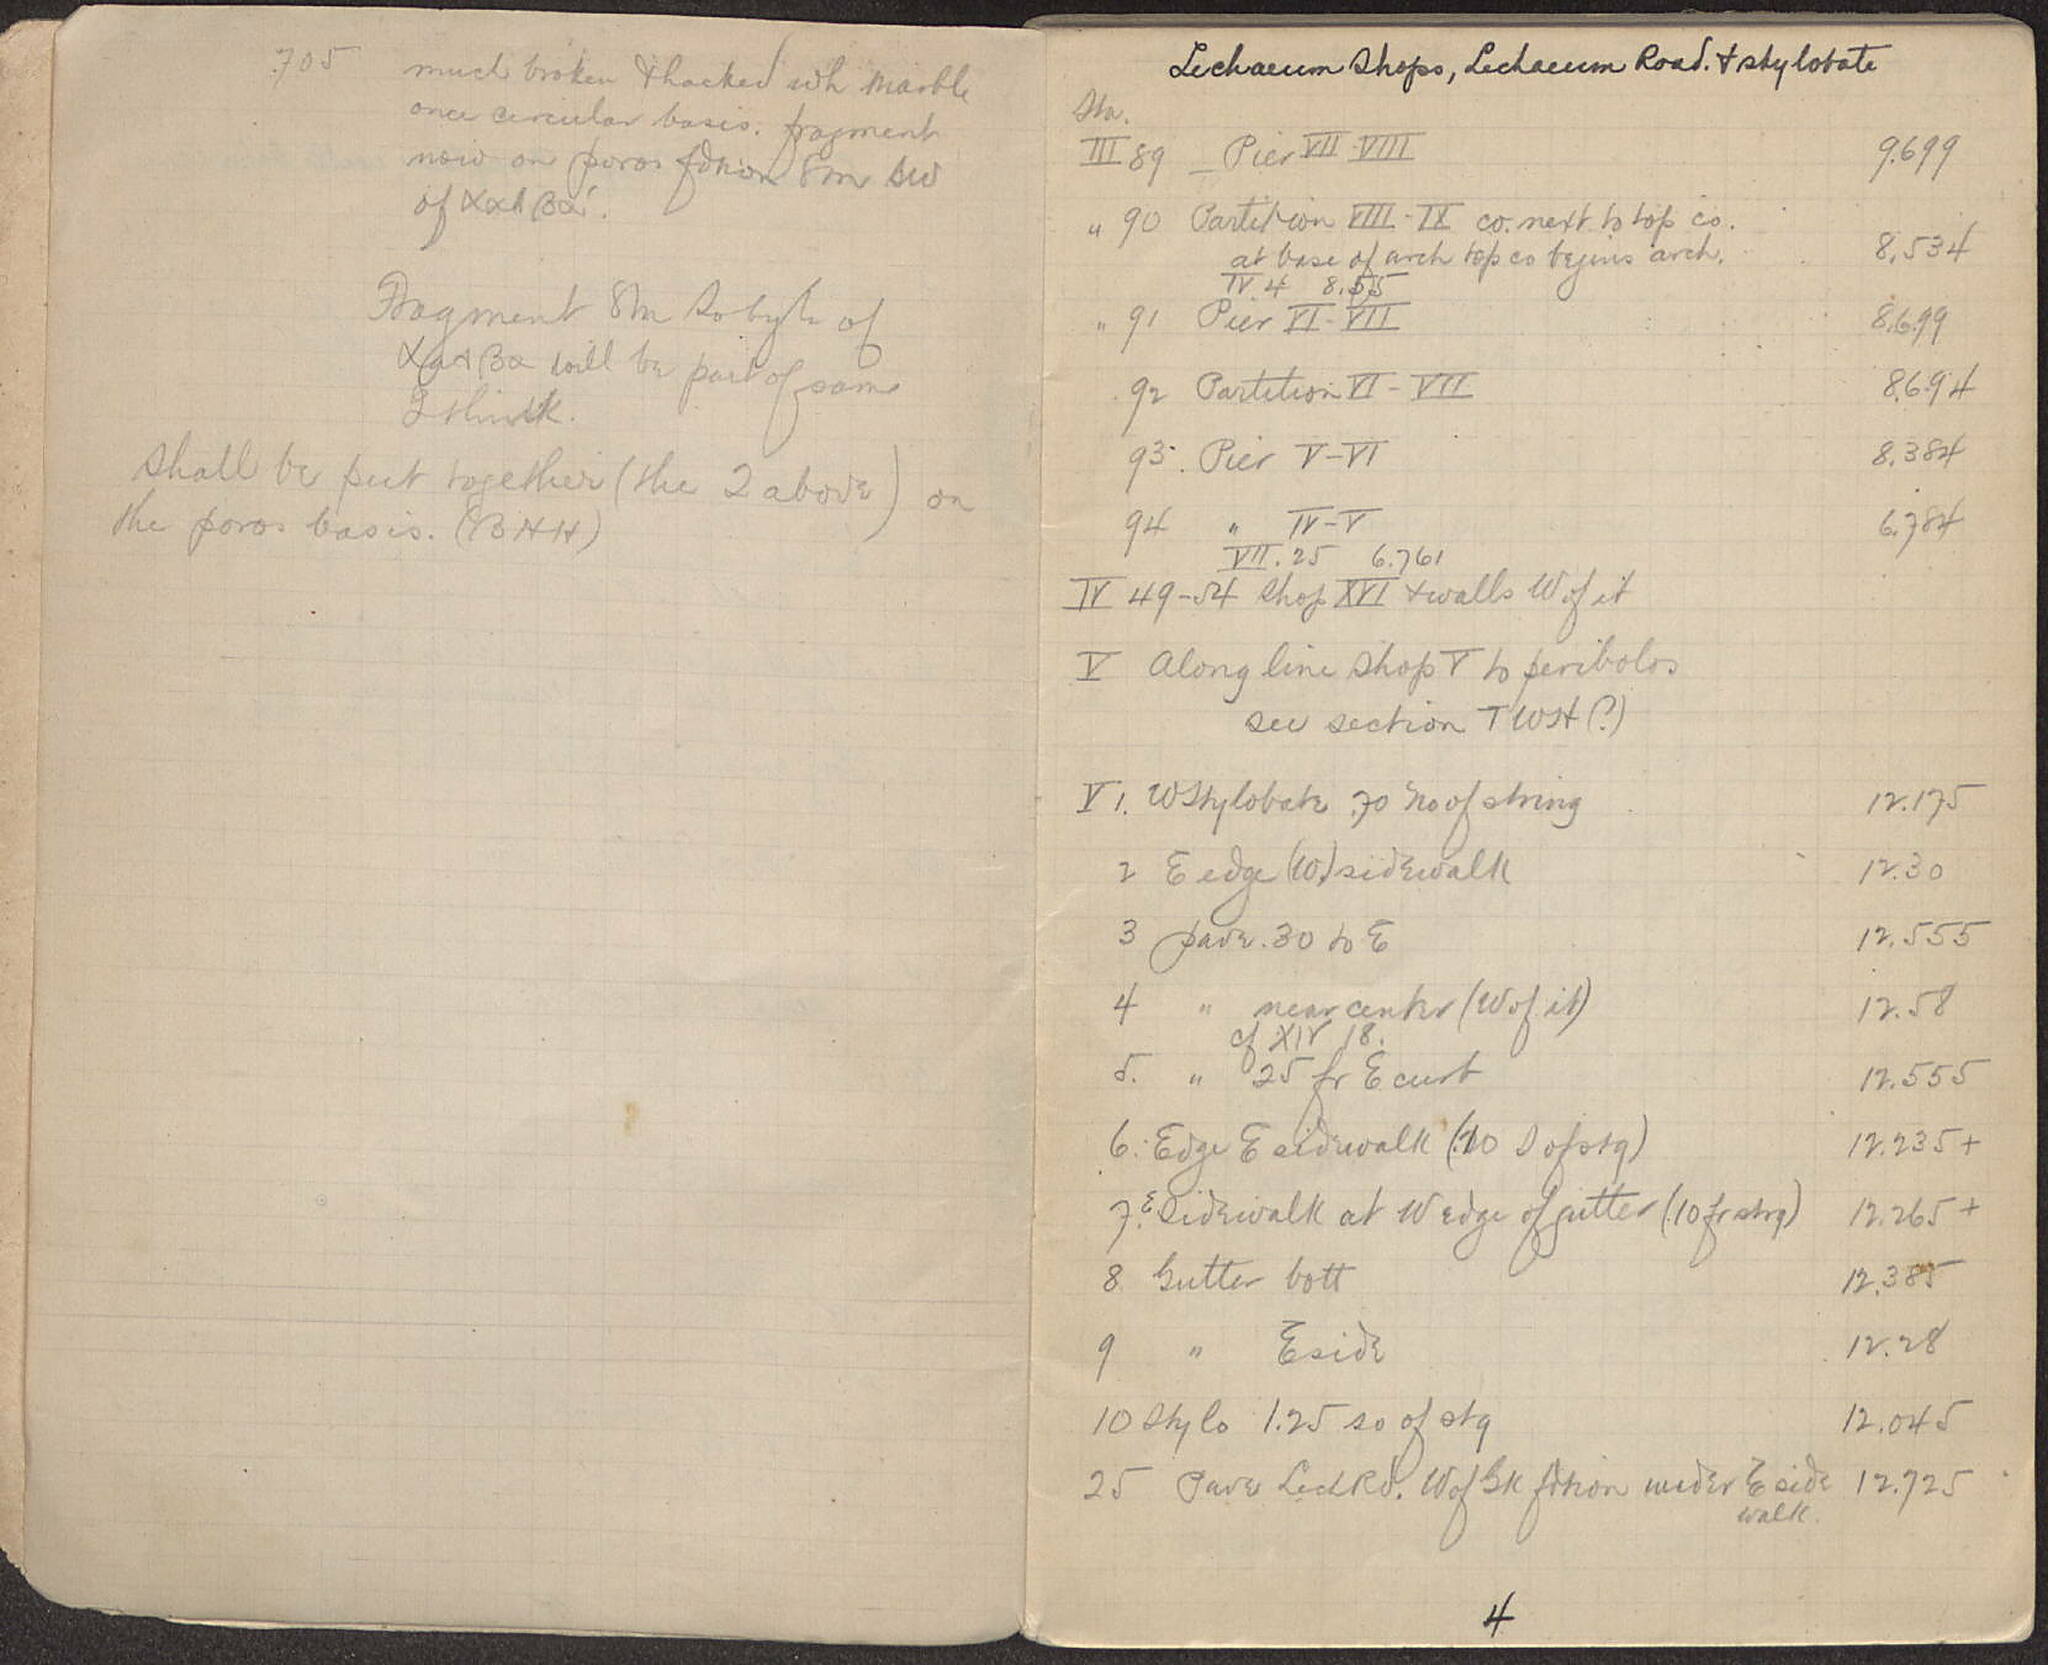 .705 much broken & hacked wh marble
once circular basis. fragment
now on poros fdtion 8m SW
of
Fragment 8m So by E of
will be part of same
I think.
Shall be put together (the 2 above) on
the poros basis. (BHH)
Lechaeum Shops, Lechaeum Road. & stylobate
Sta.
III 89 _ Pier VII-VIII 9.699
" 90 Partition VIII-IX co. next to top co.
at base of arch top co begins arch. 8.534
IV.4 8.55
" 91 Pier VI-VII 8.699
92 Partition VI-VII 8.694
93. Pier V-VI 8.384
94 " IV-V 6.784
VII.25 6.761
IV 49-54 Shop XVI & walls W of it
V Along line Shop V to peribolos
see section TWSH (?)
V 1. W Stylobate .70 No of string 12.175
2 E edge (W.) sidewalk 12.30
3 pave .30 to E 12.555
4 " near center (W of it) 12.58
cf XIV 18.
5. " 25 fr E curb 12.555
6. Edge E sidewalk (.10 S of stg) 12.235+
7. E Sidewalk at W edge of gutter (.10 fr strg) 12.265+
8 Gutter bott 12.385
9 " E side 12.28
10 Stylo 1.25 so of stg 12.045
25 Pave Lech Rd. W of Gk fdtion under E side 12.725
walk.
4